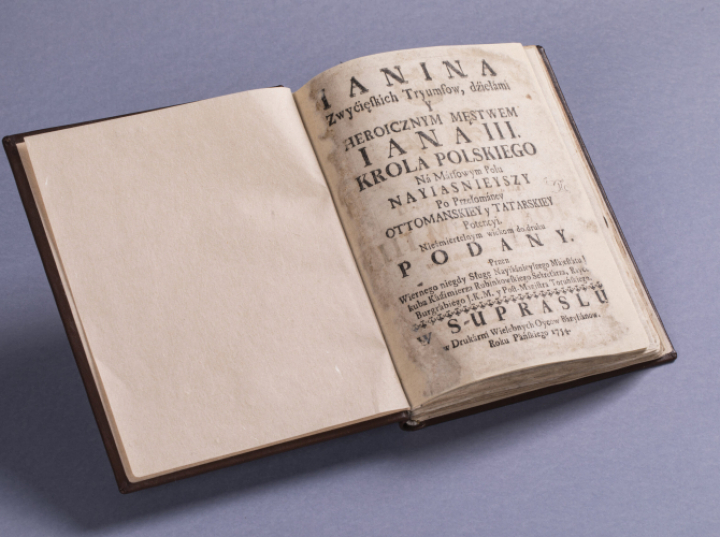 IANINA
Zwyćięſkich Tryumfow, dźiełámi
Y
HEROICZNYM MĘSTWEM
IANA III.
KROLA POLSKIEGO
Ná Márſowym Polu
NAYIASNIEYSZY
Po Przełománey
OTTOMANSKIEY y TATARSKIEY
Potencyi,
Nieśmiertelnym wiekom do druku
PODANY.
Przez
Wiernego niegdy Sługę Nayiáśnieyſzego Máieſtatu
kuba Kázimierza Rubinkowſkiego Sekretarza, Rayc
Burgrábiego J. K. M. y Poſt-Maiſtra Toruńſkiego.
W S-UPRASLU
w Drukárni Wielebnych Oycow Bázyliánow.
Roku Páńſkiego 1734.